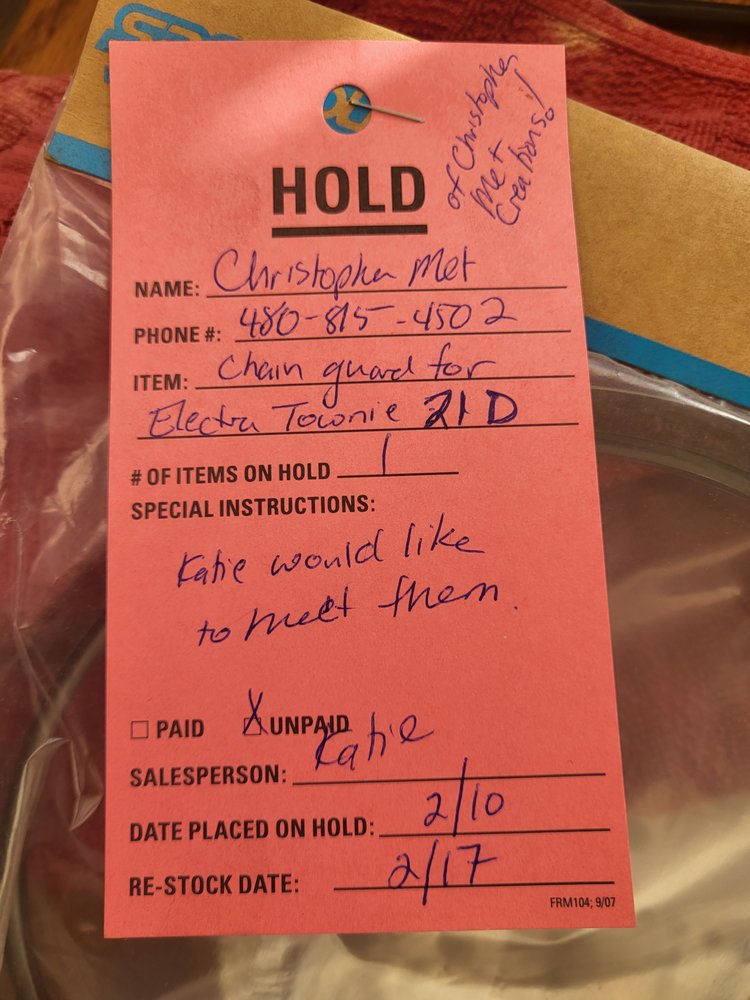 of Christopher
Met
Creations!
HOLD
NAME: Christopher Met
PHONE #: 480-815-4502
ITEM: Chain guard for
Electra Townie 21D
# OF ITEMS ON HOLD 1
SPECIAL INSTRUCTIONS:
Katie would like
to meet them.
PAID X UNPAID
SALESPERSON: Katie
DATE PLACED ON HOLD: 2/10
RE-STOCK DATE: 2/17
FRM104; 9/07